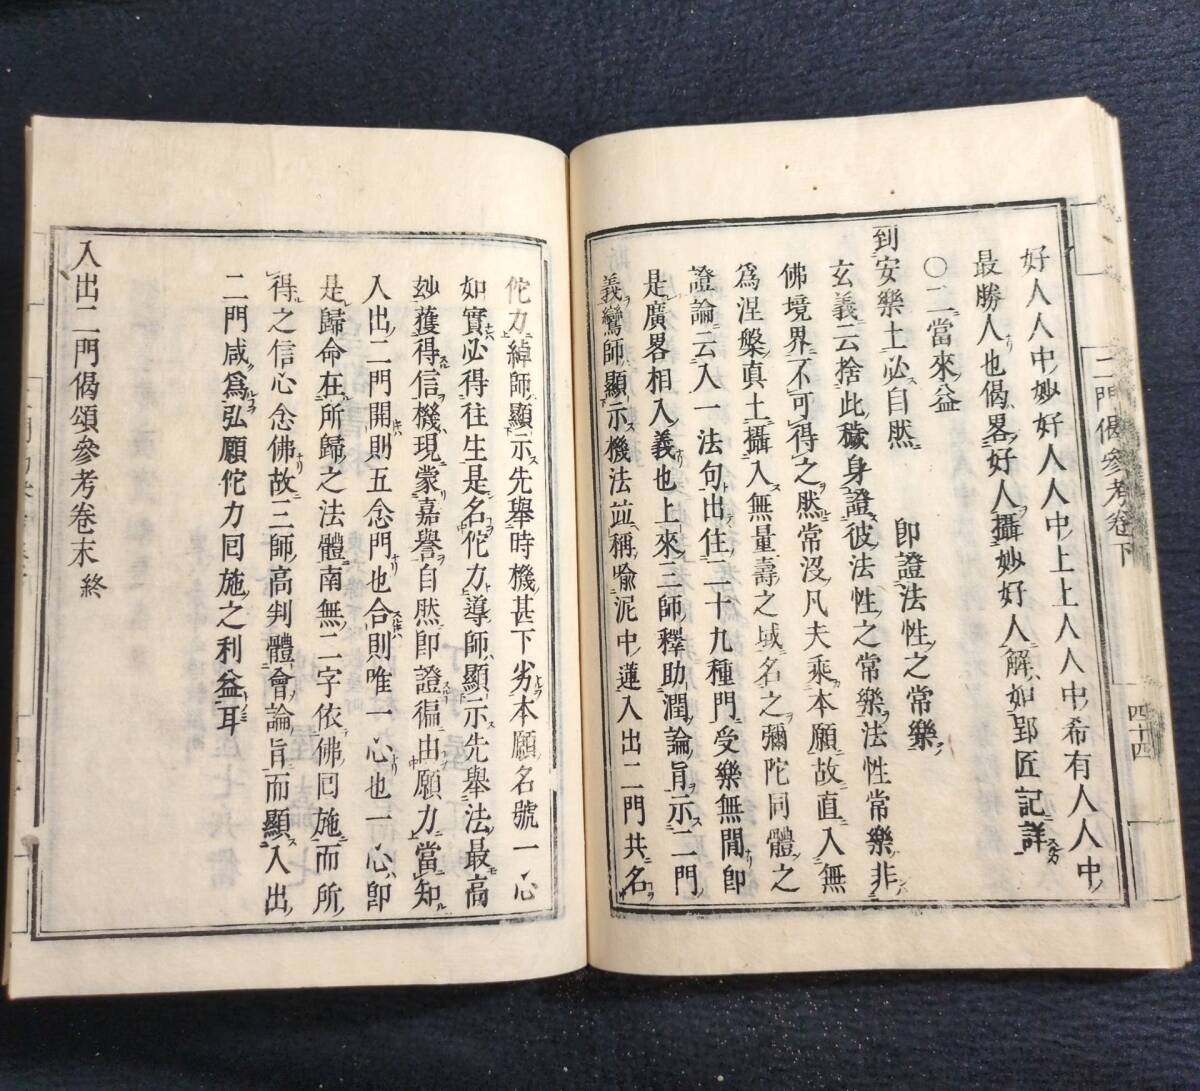 好人人中妙好人人中上上人人中希有人人中
最勝人也偈畧好人攝妙好人解如郢匠記詳
〇二當來益
到安樂土必自然　即證法性之常樂
玄義云捨此穢身證彼法性之常樂法性常樂非
佛境界不可得之然常沒凡夫乘本願故直入無
爲涅槃真土攝入無量壽之域名之彌陀同體之
證論云入一法句出住二十九種門受樂無間即
是廣畧相入義也上來三師釋助潤論旨示二門
義鸞師顯示機法並稱喩泥中蓮入出二門共名
二門偈參考卷下
四十四
佗力綽師顯示先舉時機甚下劣本願名號一心
如實必得往生是名佗力導師顯示先舉法最高
玅獲得信機現蒙嘉譽自然即證徧由願力當知
入出二門開則五念門也合則唯一心也一心即
是歸命在所歸之法體南無二字依佛囘施而所
得之信心念佛故三師高判體會論旨而顯入出
二門咸爲弘願佗力囘施之利益耳
入出二門偈頌參考卷末終